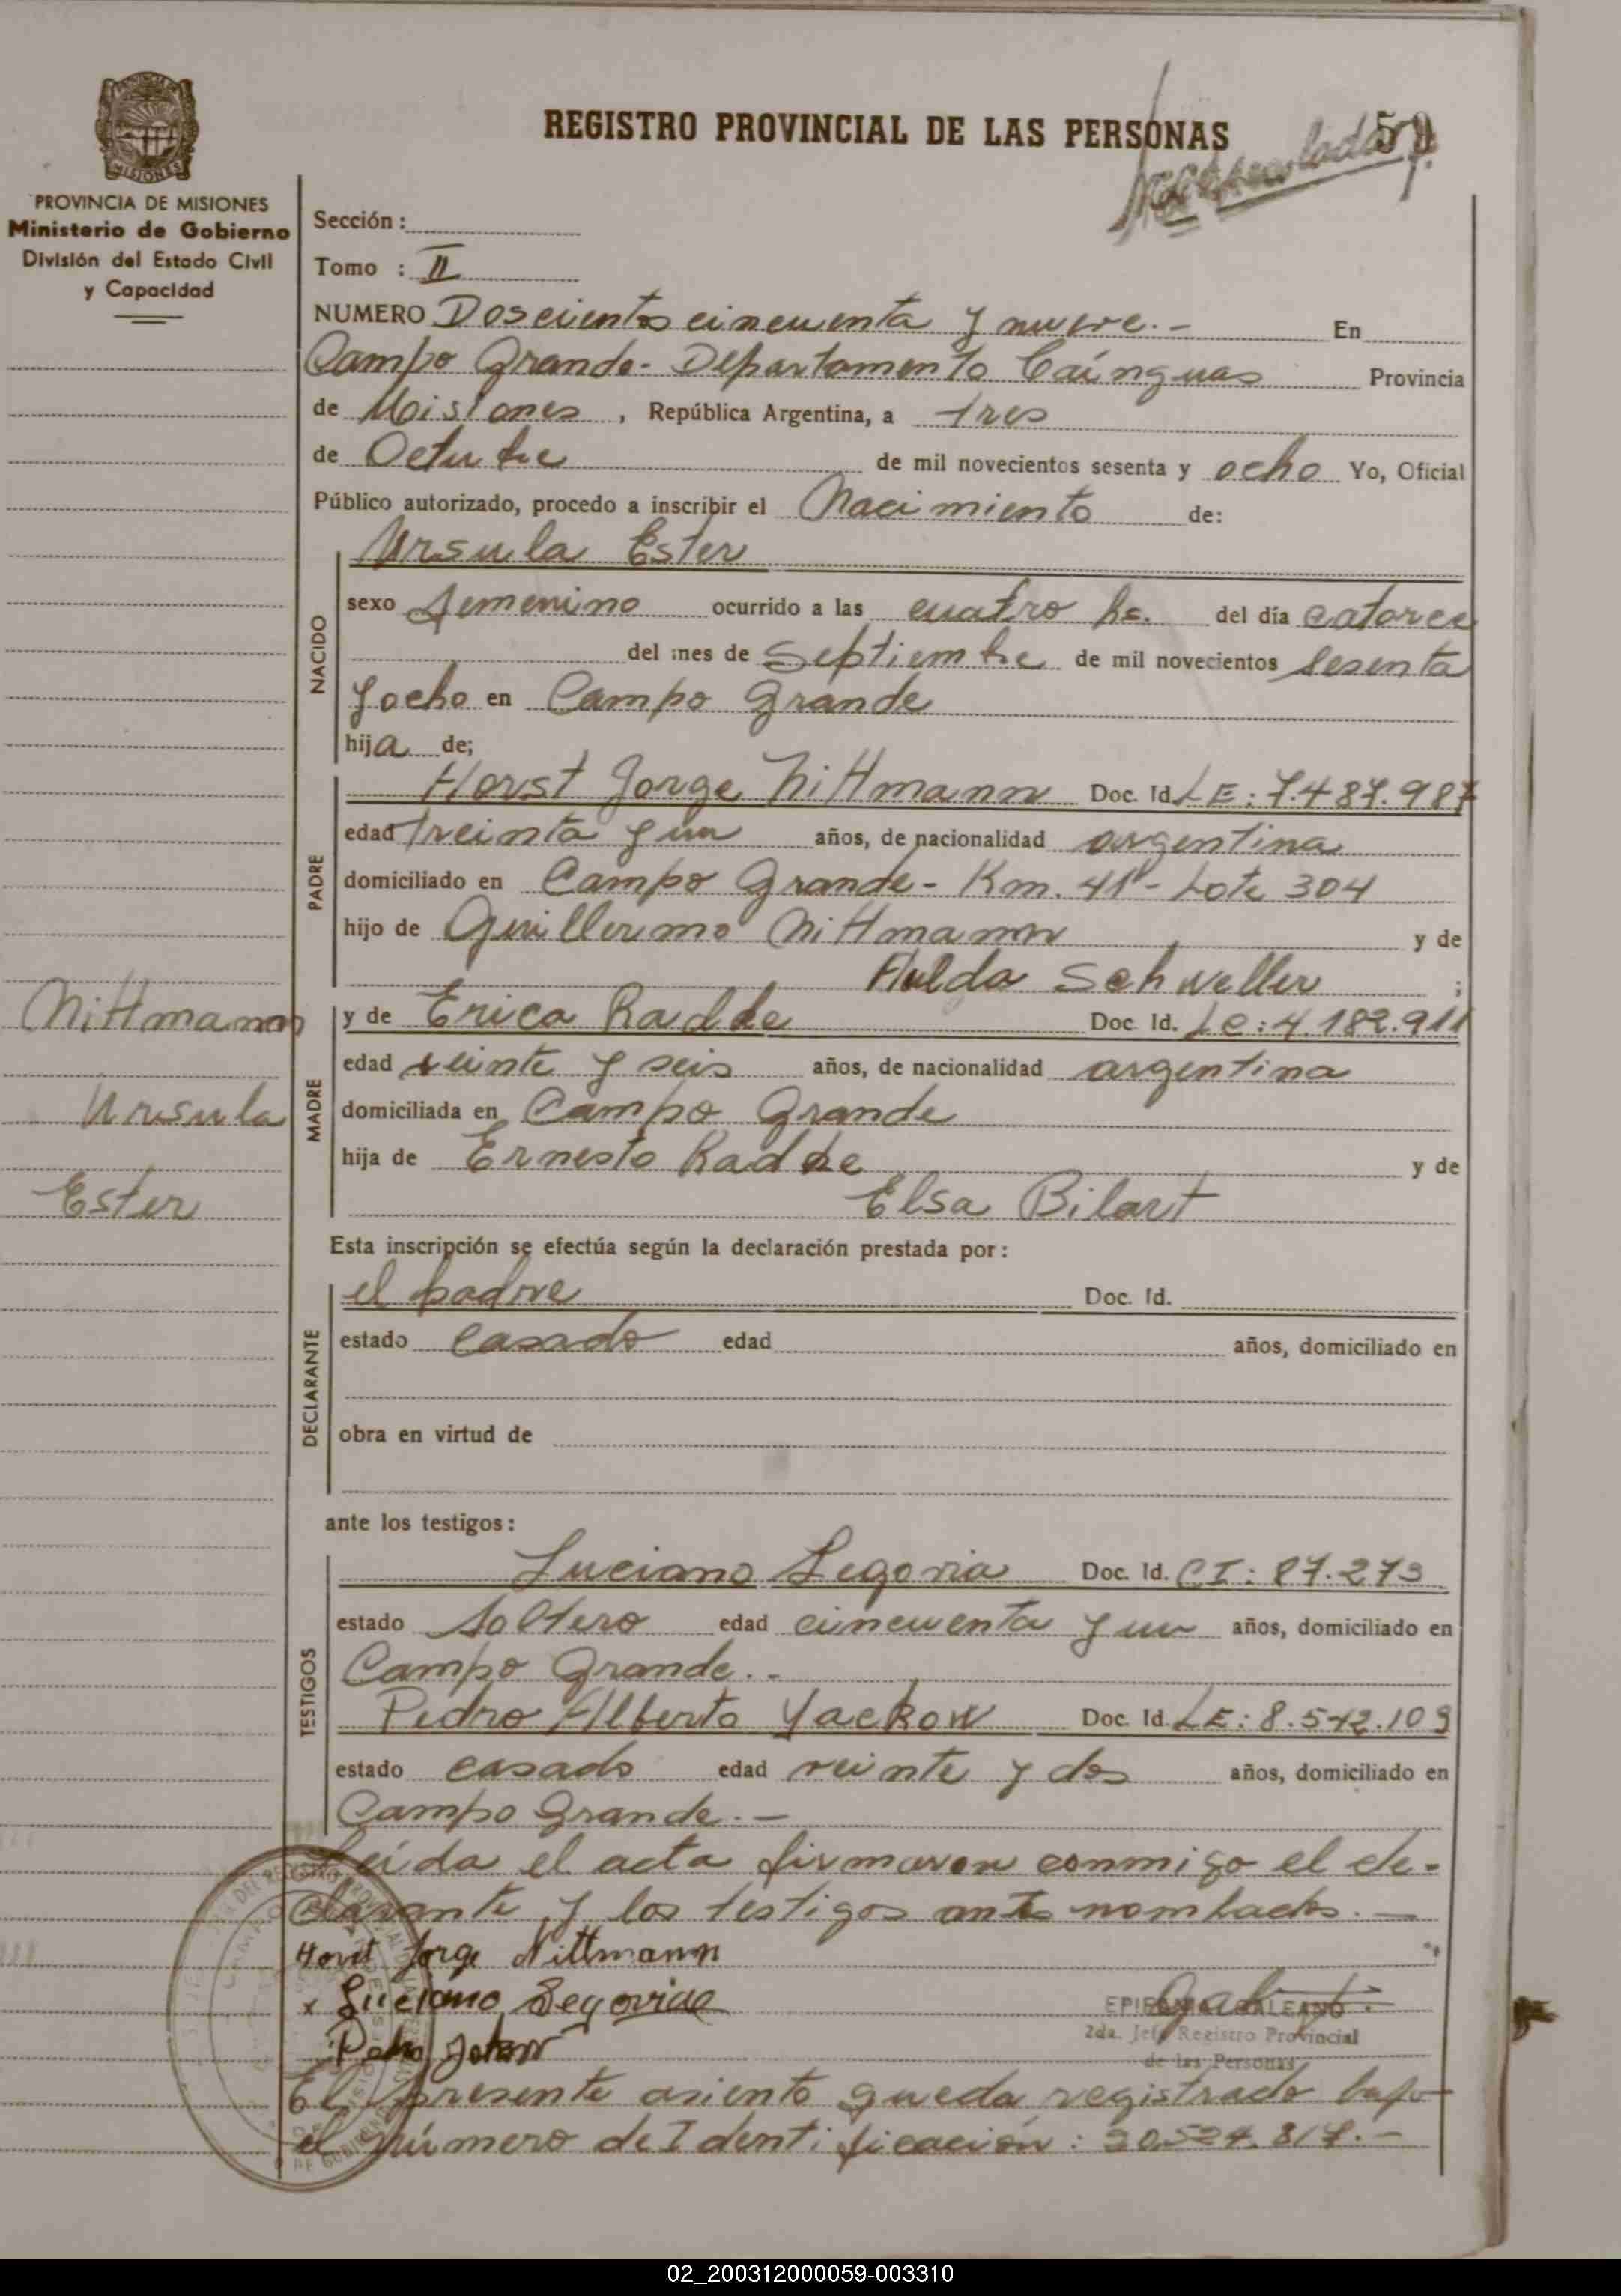 REGISTRO PROVINCIAL DE LAS PERSONAS
59
PROVINCIA DE MISIONES
Ministerio de Gobierno
División del Estado Civil
y Capacidad
Sección :
Tomo : II
NUMERO Doscientos cincuenta y nueve.- En
Campo Grande- Departamento Caínguas Provincia
de Misiones , República Argentina, a tres
de Octubre de mil novecientos sesenta y ocho Yo, Oficial
Público autorizado, procedo a inscribir el Nacimiento de:
NACIDO
Ursula Ester
sexo femenino ocurrido a las cuatro hs. del día catorce
del mes de Septiembre de mil novecientos sesenta
y ocho en Campo Grande
hija de;
PADRE
Horst Jorge Nittmann Doc. Id. LE: 7.487.987
edad treinta y un años, de nacionalidad argentina
domiciliado en Campo Grande- Km. 41"- Lote 304
hijo de Guillermo Nittmann y de
Hulda Schweller ;
Nittmann
Ursula
Ester
MADRE
y de Erica Radke Doc. Id. Lc: 4.182.911
edad veinte y seis años, de nacionalidad argentina
domiciliada en Campo Grande
hija de Ernesto Radke y de
Elsa Bilart
Esta inscripción se efectúa según la declaración prestada por :
DECLARANTE
el padre Doc. Id.
estado casado edad años, domiciliado en
obra en virtud de
ante los testigos :
TESTIGOS
Luciano Segovia Doc. Id. CI: 87.273
estado soltero edad cincuenta y un años, domiciliado en
Campo Grande.-
Pedro Alberto Yackow Doc. Id. LE: 8.542.109
estado casado edad veinte y dos años, domiciliado en
Campo Grande.-
Leída el acta firmaron conmigo el de-
clarante y los testigos antes nombados.-
Horst Jorge Nittmann
x Luciano Segovia
Pedro
EPIFANIA GALEANO
2da. Jefe Registro Provincial
de las Personas
El presente asiento queda registrado bajo
el número de Identificación: 20.524.817.-
02_200312000059-003310